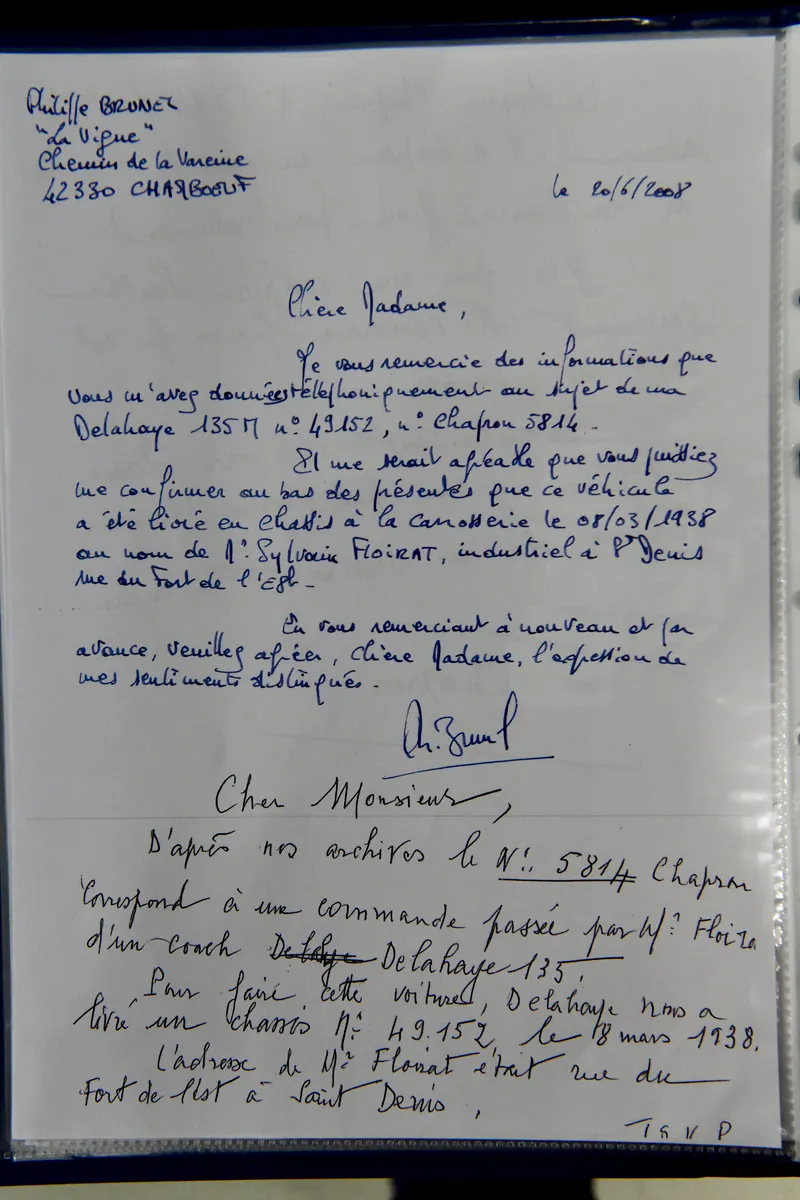 Philippe BRUNEL
"La Vigne"
Chemin de la Vareine
42330 CHAMBOEUF
le 20/6/2008
Chère Madame,
Je vous remercie des informations que
vous m'avez données téléphoniquement au sujet de ma
Delahaye 135 M n° 49152, n° Chapron 5814.
Il me serait agréable que vous puissiez
me confirmer au bas des présentes que ce véhicule
a été livré en chassis à la carrosserie le 08/03/1938
au nom de Mr. Sylvain FLOIRAT, industriel à St Denis
rue du Fort de l'Est.
En vous remerciant à nouveau et par
avance, veuillez agréer, chère Madame, l'expression de
mes sentiments distingués.
Ph. Brunel
Cher Monsieur,
D'après nos archives le N°. 5814 Chapron
Correspond à une commande passée par Mr Floira
d'un coach Delahaye 135.
Pour faire cette voiture, Delahaye nous a
livré un chassis N° 49.152, le 8 mars 1938.
L'adresse de Mr Floirat était rue du
Fort de l'Est à Saint Denis,
T S V P